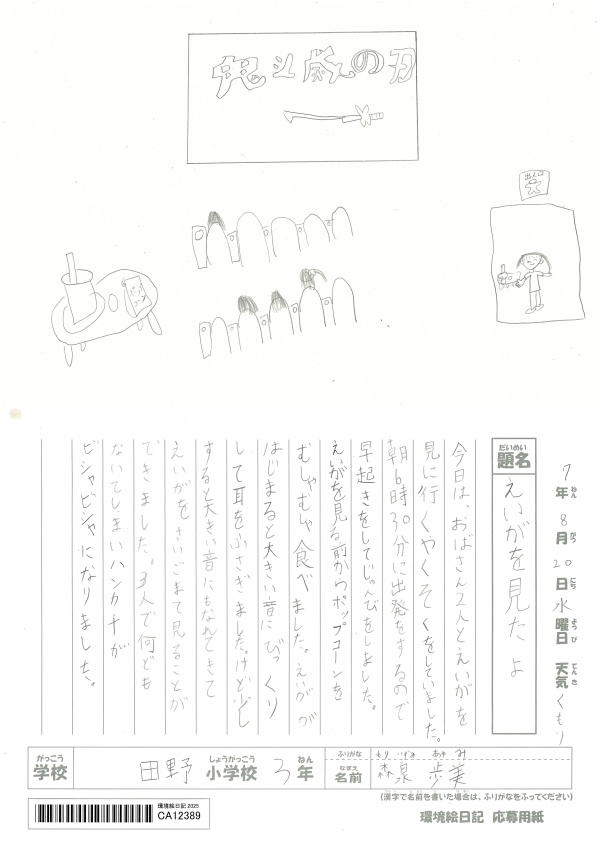 鬼滅の刃
出入口
7年8月20日水曜日 天気くもり
ねん がつ にち ようび てんき
だいめい
題名 えいがを見たよ
今日は、おばさん2人とえいがを
見に行くやくそくをしていました。
朝6時30分に出発をするので
早起きをしてじゅんびをしました。
えいがを見る前からポップコーンを
むしゃむしゃ食べました。えいがが
はじまると大きい音にびっくり
して耳をふさぎました。けど少し
すると大きい音にもなれてきて
えいがをさいごまで見ることが
できました。3人で何ども
ないてしまいハンカチが
ビシャビシャになりました。
がっこう しょうがっこう ねん
学校 田野 小学校 3年
ふりがな もり いずみ あゆ み
なまえ
名前 森泉 歩美
(漢字で名前を書いた場合は、ふりがなをふってください)
環境絵日記 2025
CA12389
環境絵日記 応募用紙